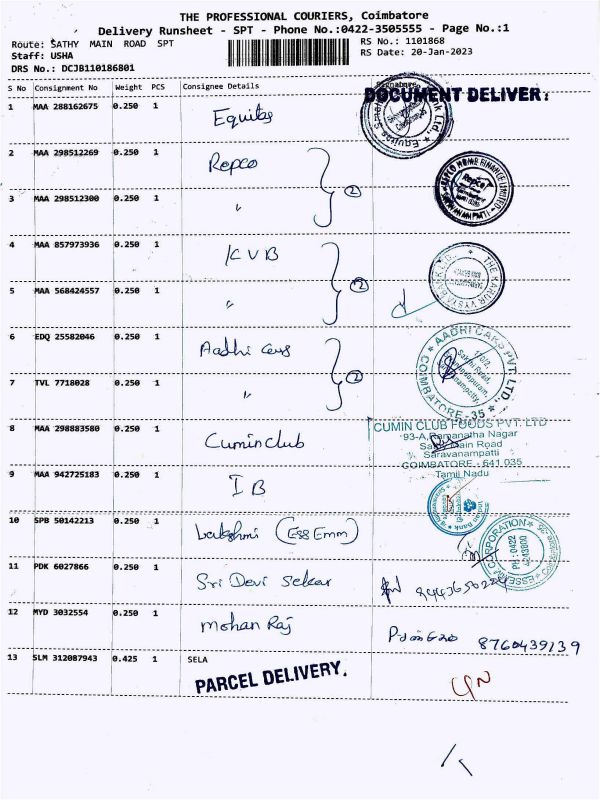 THE PROFESSIONAL COURIERS, Coimbatore
Delivery Runsheet - SPT - Phone No.:0422-3505555 - Page No.:1
Route: SATHY MAIN ROAD SPT
RS No.: 1101868
Staff: USHA
RS Date: 20-Jan-2023
DRS No.: DCJB110186801
S No Consignment No Weight PCS Consignee Details Signature
DOCUMENT DELIVER
1 MAA 288162675 0.250 1 Equitas
2 MAA 298512269 0.250 1 Repco
3 MAA 298512300 0.250 1 "
2
REPCO HOME FINANCE LIMITED
Repco
4 MAA 857973936 0.250 1 KVB
5 MAA 568424557 0.250 1 "
2
THE KARUR VYSYA BANK LTD.
6 EDQ 25582046 0.250 1 Aadhi cars
7 TVL 7718028 0.250 1 "
2
AADHI CARS PVT. LTD.,
COIMBATORE-35
170/2,
Sathi Road,
8 MAA 298883580 0.250 1 Cuminclub
CUMIN CLUB FOODS PVT. LTD
93-A, Ramanatha Nagar
Sathy Main Road
Saravanampatti
COIMBATORE - 641 035
Tamil Nadu
9 MAA 942725183 0.250 1 IB
Indian Bank
10 SPB 50142213 0.250 1 Lakshmi (Ess Emm)
CORPORATION
PH : 0422
4243800
11 PDK 6027866 0.250 1 Sri Devi Sekar
12 MYD 3032554 0.250 1 Mohan Raj
8760439139
13 SLM 312087943 0.425 1 SELA
PARCEL DELIVERY.